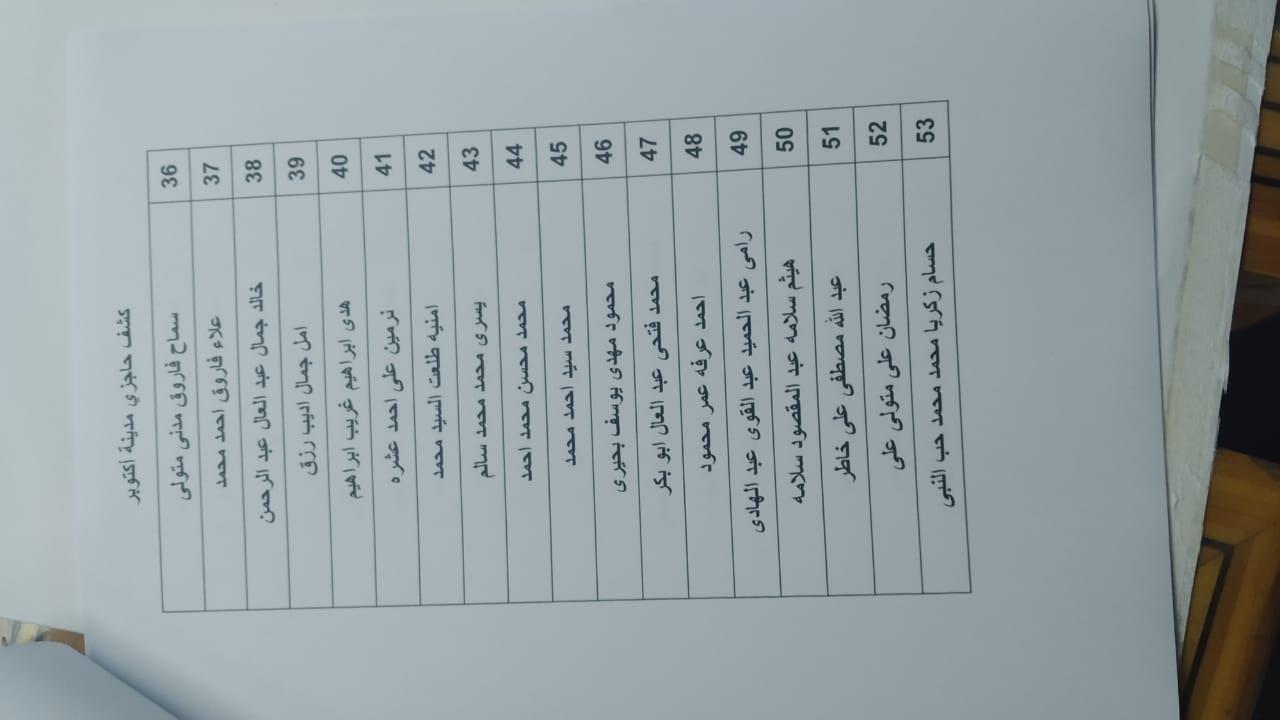 كشف حاجزي مدينة اكتوبر
36 سماح فاروق مدنى متولى
37 علاء فاروق احمد محمد
38 خالد جمال عبد العال عبد الرحمن
39 امل جمال اديب رزق
40 هدى ابراهيم غريب ابراهيم
41 نرمين على احمد عشره
42 امنيه طلعت السيد محمد
43 يسرى محمد محمد سالم
44 محمد محسن محمد احمد
45 محمد سيد احمد محمد
46 محمود مهدى يوسف بحيرى
47 محمد فتحى عبد العال ابو بكر
48 احمد عرفه عمر محمود
49 رامى عبد الحميد عبد القوى عبد الهادى
50 هيثم سلامه عبد المقصود سلامه
51 عبد الله مصطفى على خاطر
52 رمضان على متولى على
53 حسام زكريا محمد محمد حب النبى